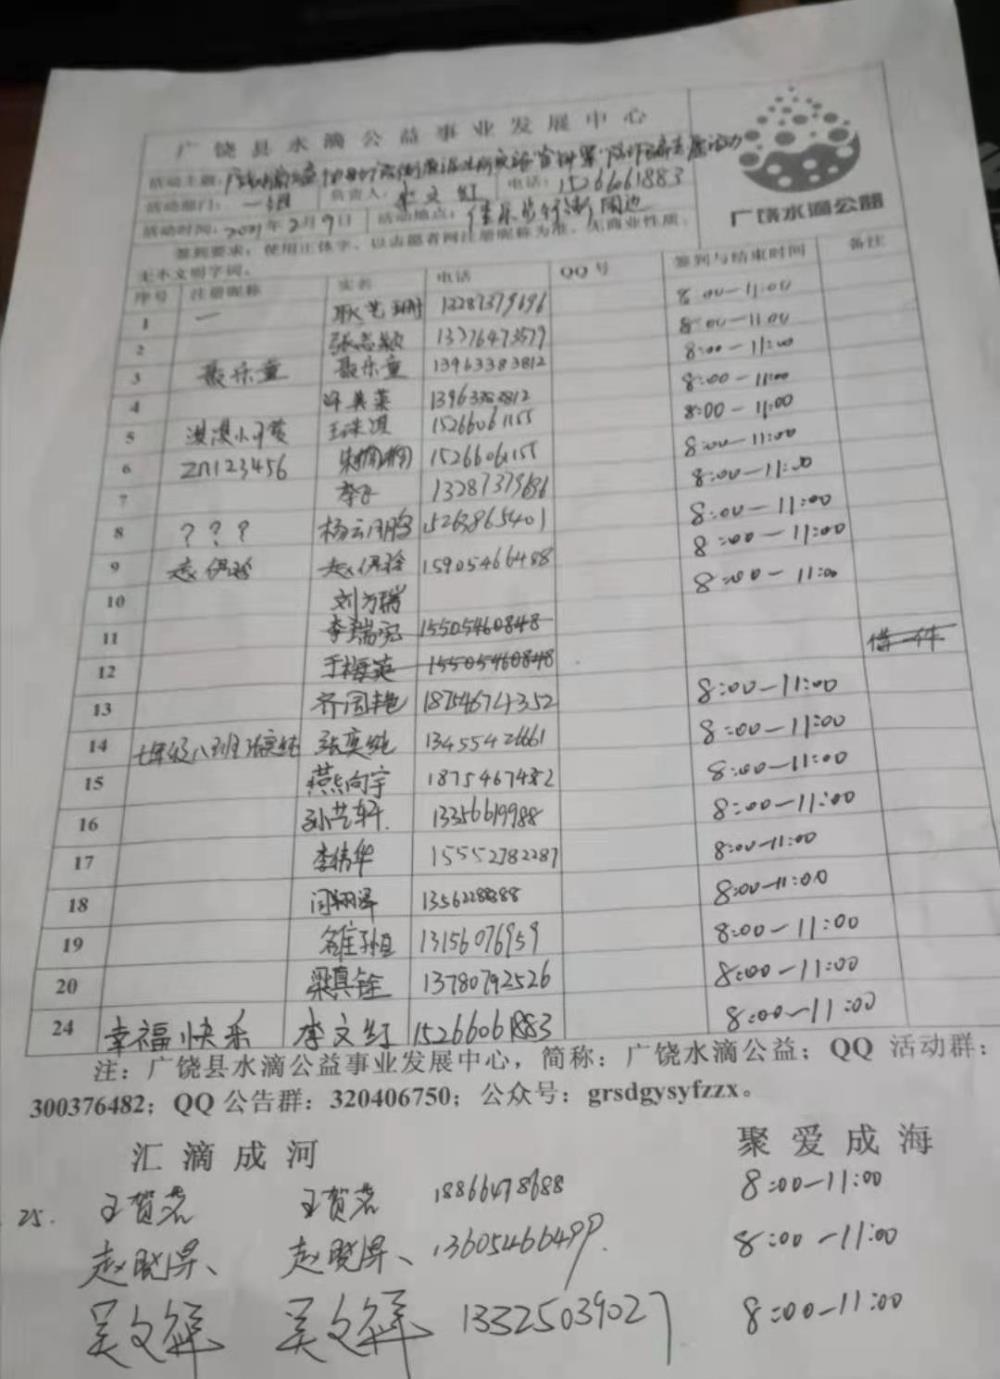 广饶县水滴公益事业发展中心
广饶水滴公益
活动主题:
活动部门: 一组 负责人: 李文红 电话: 15266061883
活动时间: 2021年2月9日 活动地点: 周边
签到要求: 使用正体字、以志愿者网注册昵称为准、无商业性质、
无不文明字词。
序号 注册昵称 实名 电话 QQ号 签到与结束时间 备注
1 一 耿艺珊 13287379696 8:00—11:00
2 13276473579 8:00—11:00
3 聂乐童 聂乐童 13963383812 8:00—11:00
4 许美荣 13963383812 8:00—11:00
5 淇淇小可爱 王淇淇 15266061155 8:00—11:00
6 zn123456 15266061155 8:00—11:00
7 李子 13287379696 8:00—11:00
8 ??? 杨云鹏 15263865401 8:00—11:00
9 赵偲玲 赵偲玲 15905466488 8:00—11:00
10 刘方瑞 8:00—11:00
11 15505460848
12 于梅英 15505460848 借一件
13 齐国艳 18754674352 8:00—11:00
14 七年级八班张奕纯 张奕纯 13455426661 8:00—11:00
15 燕向宇 18754674352 8:00—11:00
16 孙艺轩 13356619988 8:00—11:00
17 李伟华 15552782287 8:00—11:00
18 闫翔泽 8:00—11:00
19 13156076959 8:00—11:00
20 梁真铨 13780792526 8:00—11:00
24 幸福快乐 李文红 15266061883 8:00—11:00
注: 广饶县水滴公益事业发展中心, 简称: 广饶水滴公益; QQ 活动群:
300376482; QQ公告群: 320406750; 公众号: grsdgysyfzzx。
汇滴成河 聚爱成海
25. 王贺茗 王贺茗 18866478688 8:00—11:00
赵晓昇、 赵晓昇、 13605466499. 8:00—11:00
吴文祥 吴文祥 13325039027 8:00—11:00